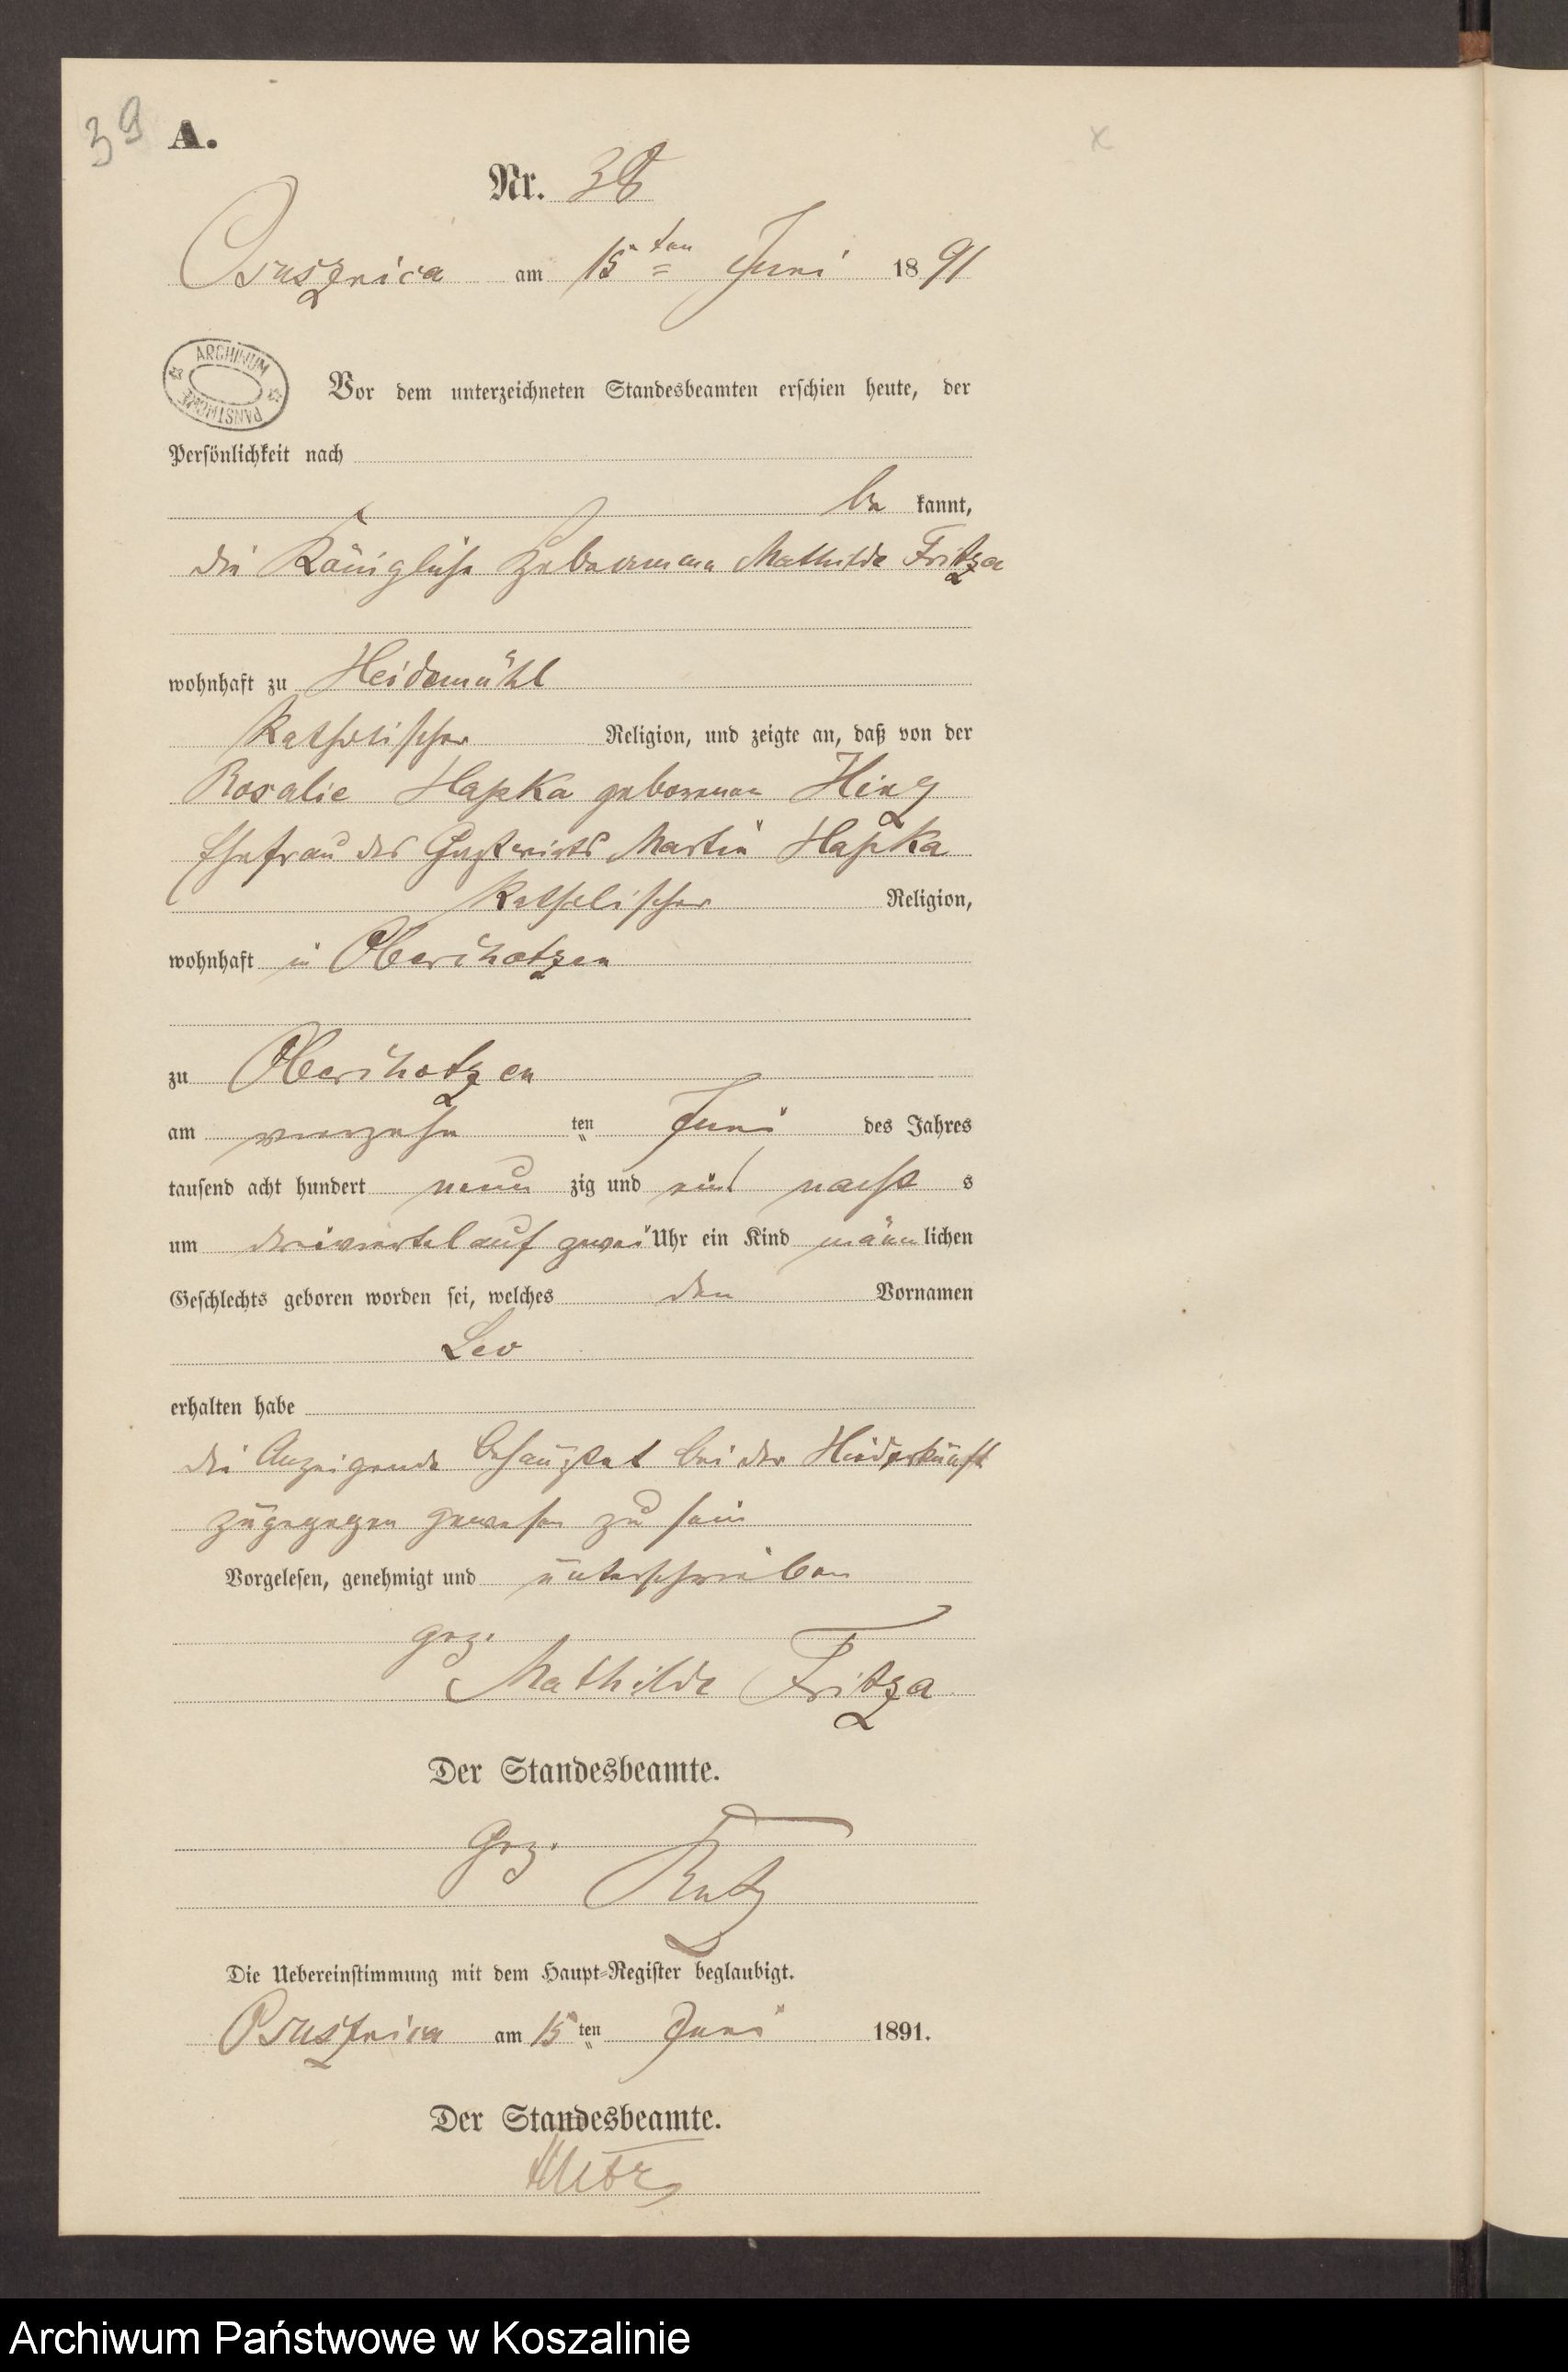 39 A.
Nr. 38
Ossusznica am 15ten Juni 1891
ARCHIWUM PAŃSTWOWE
Vor dem unterzeichneten Standesbeamten erschien heute, der
Persönlichkeit nach
be kannt,
die Königliche Hebeamme Mathilde Fritza
wohnhaft zu Heidemühl
katholischer Religion, und zeigte an, daß von der
Rosalie Hapka geborenen Hinz
Ehefrau des Gastwirts Martin Hapka
katholischer Religion,
wohnhaft in
zu
am vierzehn ten Juni des Jahres
tausend acht hundert neun zig und eins nachts
um dreiviertel auf zwei Uhr ein Kind männlichen
Geschlechts geboren worden sei, welches den Vornamen
Leo
erhalten habe
die Anzeigende behauptet bei der Niederkunft
zugegegen gewesen zu sein
Vorgelesen, genehmigt und unterschrieben
gez.
Mathilde Fritza
Der Standesbeamte.
Gez.
Die Uebereinstimmung mit dem Haupt-Register beglaubigt.
am 15ten Juni 1891.
Der Standesbeamte.
Archiwum Państwowe w Koszalinie